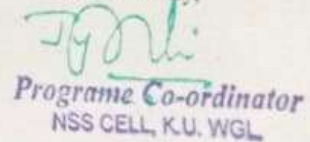 Programe Co-ordinator
NSS CELL, K.U. WGL